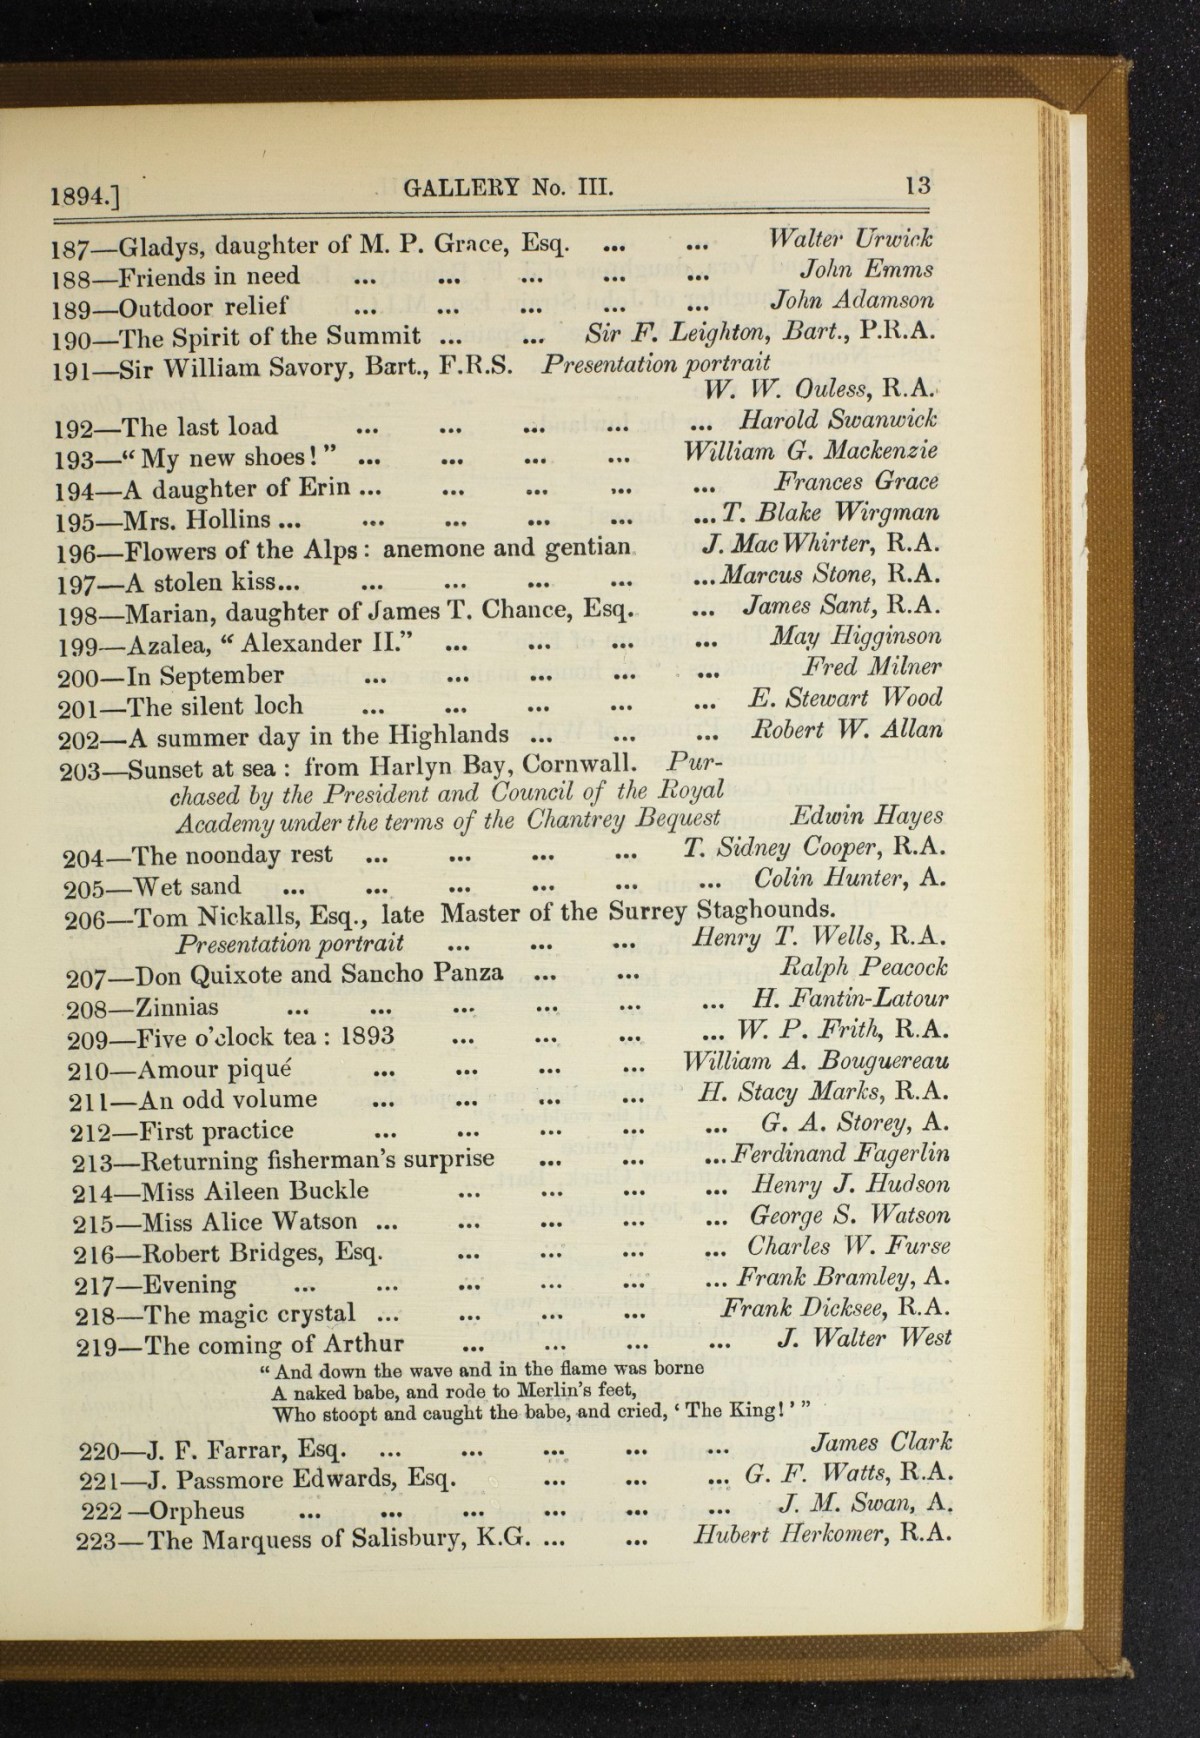 1894.] GALLERY No. III. 13
187—Gladys, daughter of M. P. Grace, Esq. ... ... Walter Urwick
188—Friends in need ... ... ... ... ... John Emms
189—Outdoor relief ... ... ... ... ... John Adamson
190—The Spirit of the Summit ... ... Sir F. Leighton, Bart., P.R.A.
191—Sir William Savory, Bart., F.R.S. Presentation portrait
W. W. Ouless, R.A.
192—The last load ... ... ... ... ... Harold Swanwick
193—“ My new shoes! ” ... ... ... ... William G. Mackenzie
194—A daughter of Erin ... ... ... ... ... Frances Grace
195—Mrs. Hollins ... ... ... ... ... ... T. Blake Wirgman
196—Flowers of the Alps : anemone and gentian J. MacWhirter, R.A.
197—A stolen kiss... ... ... ... ... ... Marcus Stone, R.A.
198—Marian, daughter of James T. Chance, Esq. ... James Sant, R.A.
199—Azalea, “ Alexander II.” ... ... ... ... May Higginson
200—In September ... ... ... ... ... Fred Milner
201—The silent loch ... ... ... ... ... E. Stewart Wood
202—A summer day in the Highlands ... ... ... Robert W. Allan
203—Sunset at sea : from Harlyn Bay, Cornwall. Pur-
chased by the President and Council of the Royal
Academy under the terms of the Chantrey Bequest Edwin Hayes
204—The noonday rest ... ... ... ... T. Sidney Cooper, R.A.
205—Wet sand ... ... ... ... ... ... Colin Hunter, A.
206—Tom Nickalls, Esq., late Master of the Surrey Staghounds.
Presentation portrait ... ... ... Henry T. Wells, R.A.
207—Don Quixote and Sancho Panza ... ... Ralph Peacock
208—Zinnias ... ... ... ... ... ... H. Fantin-Latour
209—Five o'clock tea : 1893 ... ... ... ... W. P. Frith, R.A.
210—Amour piqué ... ... ... ... William A. Bouguereau
211—An odd volume ... ... ... ... H. Stacy Marks, R.A.
212—First practice ... ... ... ... ... G. A. Storey, A.
213—Returning fisherman's surprise ... ... ... Ferdinand Fagerlin
214—Miss Aileen Buckle ... ... ... ... Henry J. Hudson
215—Miss Alice Watson ... ... ... ... ... George S. Watson
216—Robert Bridges, Esq. ... ... ... ... Charles W. Furse
217—Evening ... ... ... ... ... ... Frank Bramley, A.
218—The magic crystal ... ... ... ... Frank Dicksee, R.A.
219—The coming of Arthur ... ... ... ... J. Walter West
“ And down the wave and in the flame was borne
A naked babe, and rode to Merlin's feet,
Who stoopt and caught the babe, and cried, ‘ The King! ’ ”
220—J. F. Farrar, Esq. ... ... ... ... ... James Clark
221—J. Passmore Edwards, Esq. ... ... ... G. F. Watts, R.A.
222—Orpheus ... ... ... ... ... ... J. M. Swan, A.
223—The Marquess of Salisbury, K.G. ... ... Hubert Herkomer, R.A.